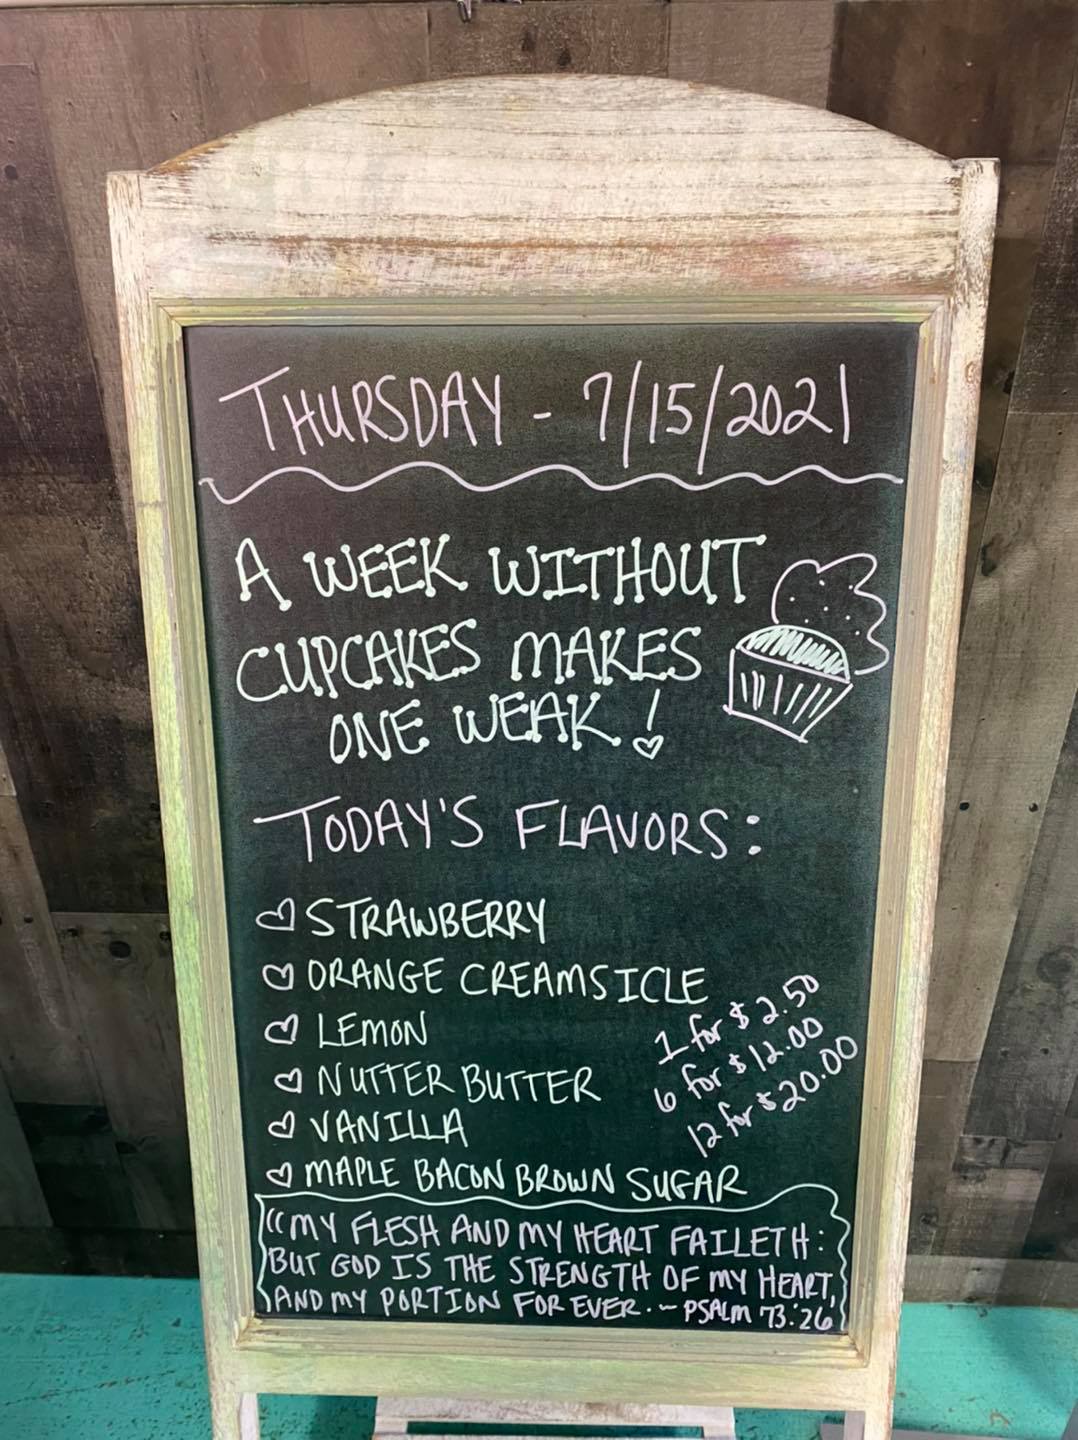 THURSDAY - 7/15/2021
A WEEK WITHOUT
CUPCAKES MAKES
ONE WEAK!
TODAY'S FLAVORS:
STRAWBERRY
ORANGE CREAMSICLE
LEMON
NUTTER BUTTER
VANILLA
MAPLE BACON BROWN SUGAR
1 for $2.50
6 for $12.00
12 for $20.00
"MY FLESH AND MY HEART FAILETH:
BUT GOD IS THE STRENGTH OF MY HEART,
AND MY PORTION FOR EVER. ~ PSALM 73:26